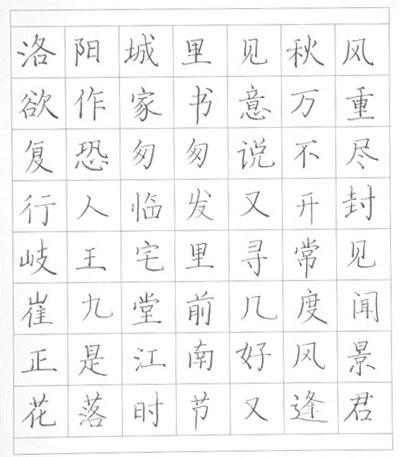 洛阳城里见秋风
欲作家书意万重
复恐匆匆说不尽
行人临发又开封
岐王宅里寻常见
崔九堂前几度闻
正是江南好风景
花落时节又逢君